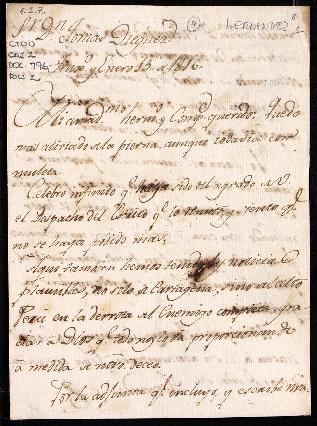 HERNANDEZ
CTDU
CAJ 2
DOC 796
FOLI 2
Sr. Dn.
Tomas
y Enero 13 de 1816.
Mi amad.mo herm.o y Comp.e querido: Quedo
mas aliviado de la pierna, aunque todavia con
muleta.
Celebro infinito q.e haya sido del agrado de V.
el Despacho del q.e le y siento q.e
no se haya podido mas,
Aqui tambien hemos tenido noticia
plausible, no solo de Cartagena, sino del alto
Peru en la derrota del Enemigo completa, gra-
cias a Dios q.e todo nos lo va proporcionando
a medida de ntro. deseo.
Por la adjunta q.e incluyo, y escribe